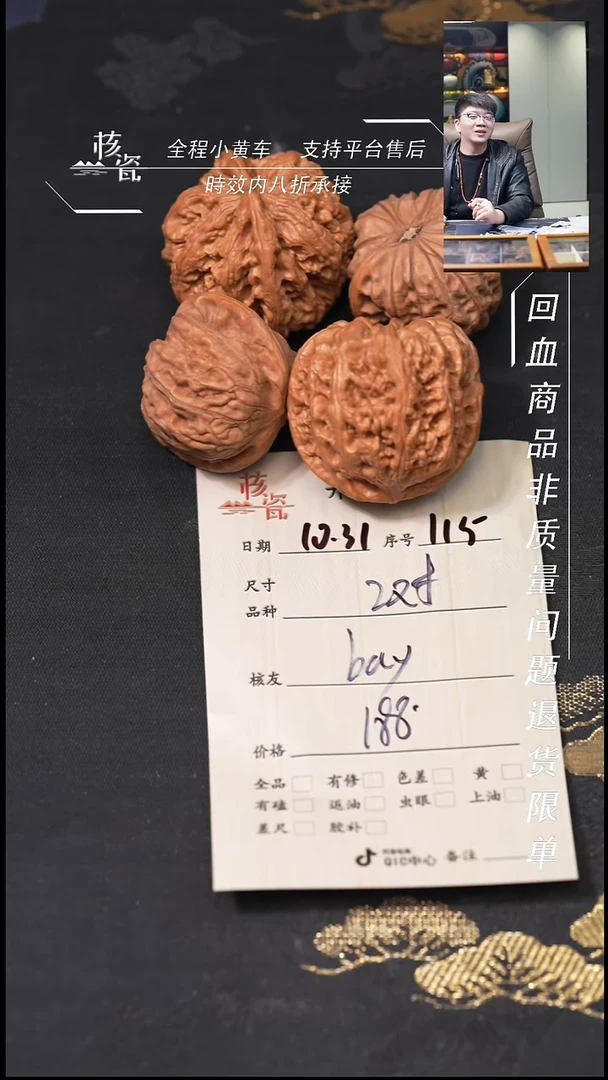 核瓷
全程小黄车 支持平台售后
時效内八折承接
回血商品非质量问题退货限单
核瓷
日期 10.31 序号 115
尺寸
品种 2对
核友 bay
价格 188
全品 有修 色差 黄
有磕 返油 虫眼 上油
差尺 胶补
QIC中心 备注